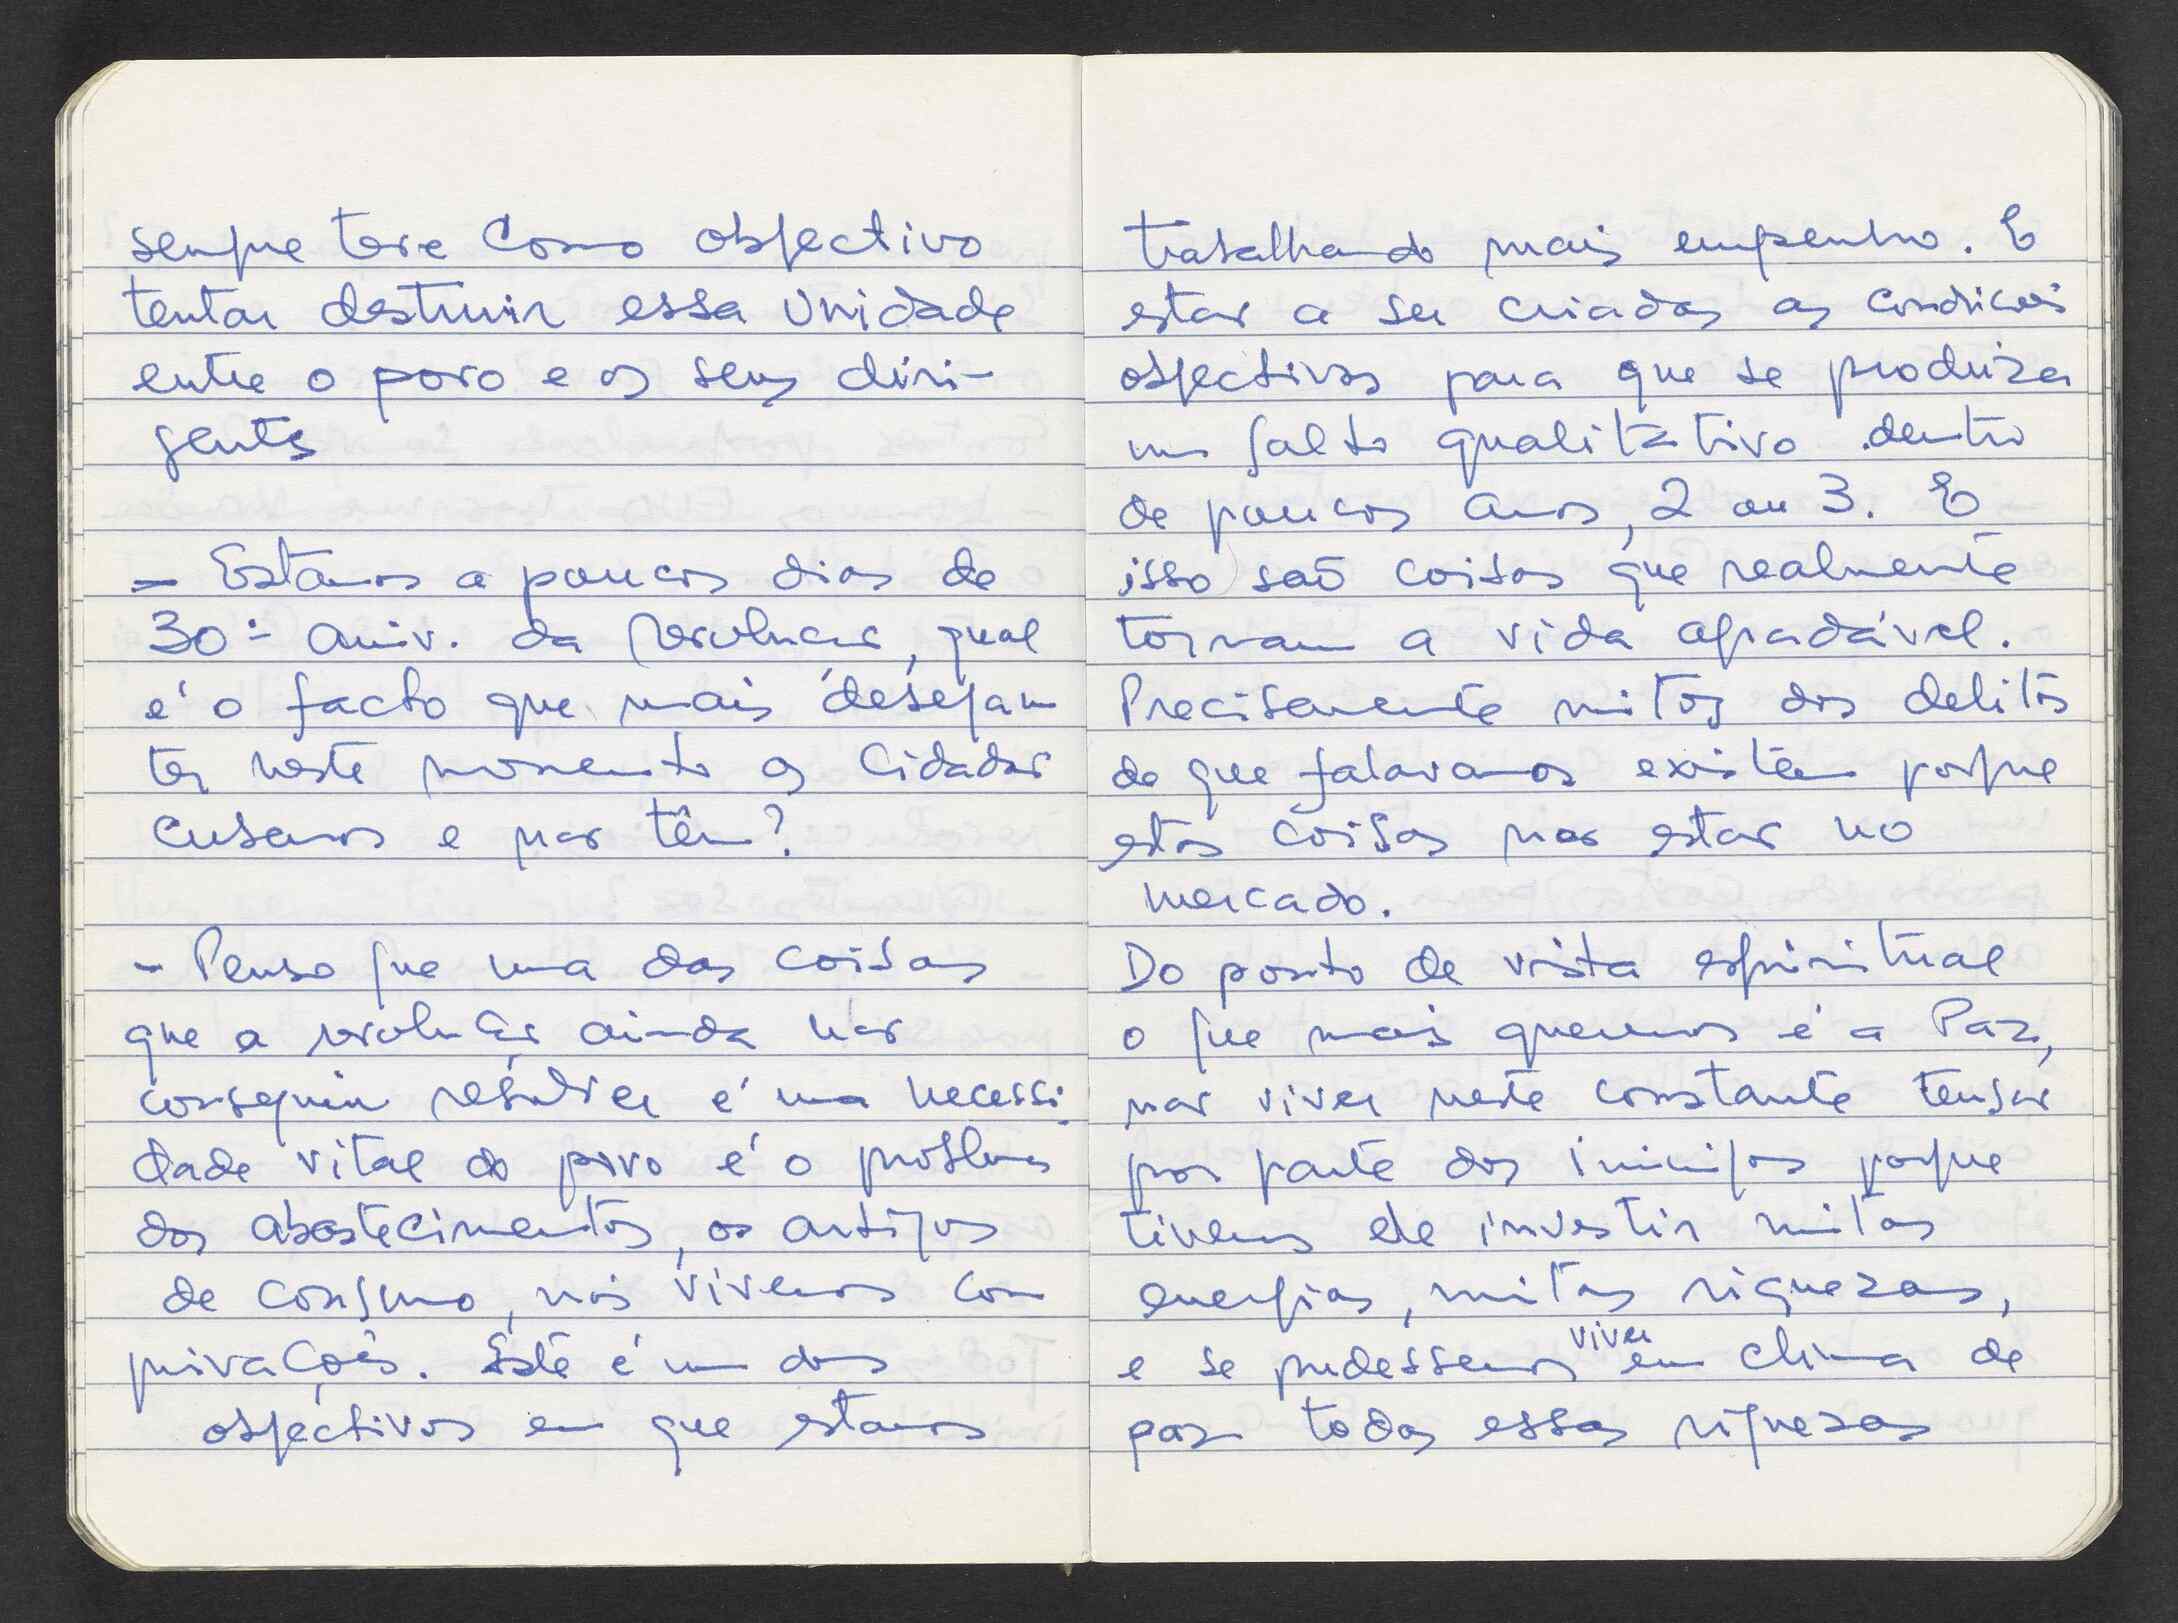 sempre teve como objectivo
tentar destruir essa unidade
entre o povo e os seus diri-
gentes
- Estamos a poucos dias de
30º aniv. da Revolucão, qual
é o facto que mais desejam
ter neste momento os cidadãos
cubanos e não têm?
- Penso que uma das coisas
que a revolução ainda não
conseguiu resolver é uma necessi
dade vital do povo é o problema
dos abastecimentos, os artigos
de consumo, nós vivemos com
privações. Este é um dos
objectivos em que estamos
trabalhando mais empenho. E
estão a ser criadas as condicões
objectivas para que se produza
um salto qualitativo dentro
de poucos anos, 2 ou 3. E
isso são coisas que realmente
tornam a vida agradável.
Precisamente mitos dos delitos
de que falavamos existem porque
estas coisas não estão no
mercado.
Do ponto de vista espiritual
o que mais queremos é a Paz,
não viver neste constante tensão
por parte dos inimigos porque
tivemos de investir mitas
energias, mitas riquezas,
e se pudessemos viver em clima de
paz todas essas riquezas